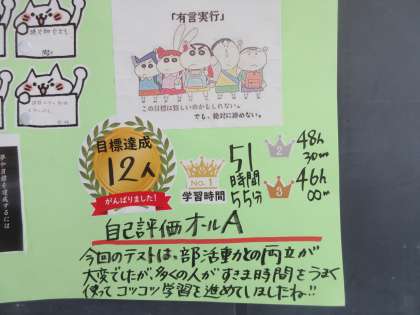 「有言実行」
この目標は難しいのかもしれない。
でも、絶対に諦めない。
目標達成
12人
がんばりました!
No.1
学習時間
51
時間
55分
2
48h
30m
3
46h
00m
自己評価オールA
今回のテストは、部活動との両立が
大変でしたが、多くの人がすきま時間をうまく
使ってコツコツ学習を進めてしましたね!!
夢や目標を達成するには